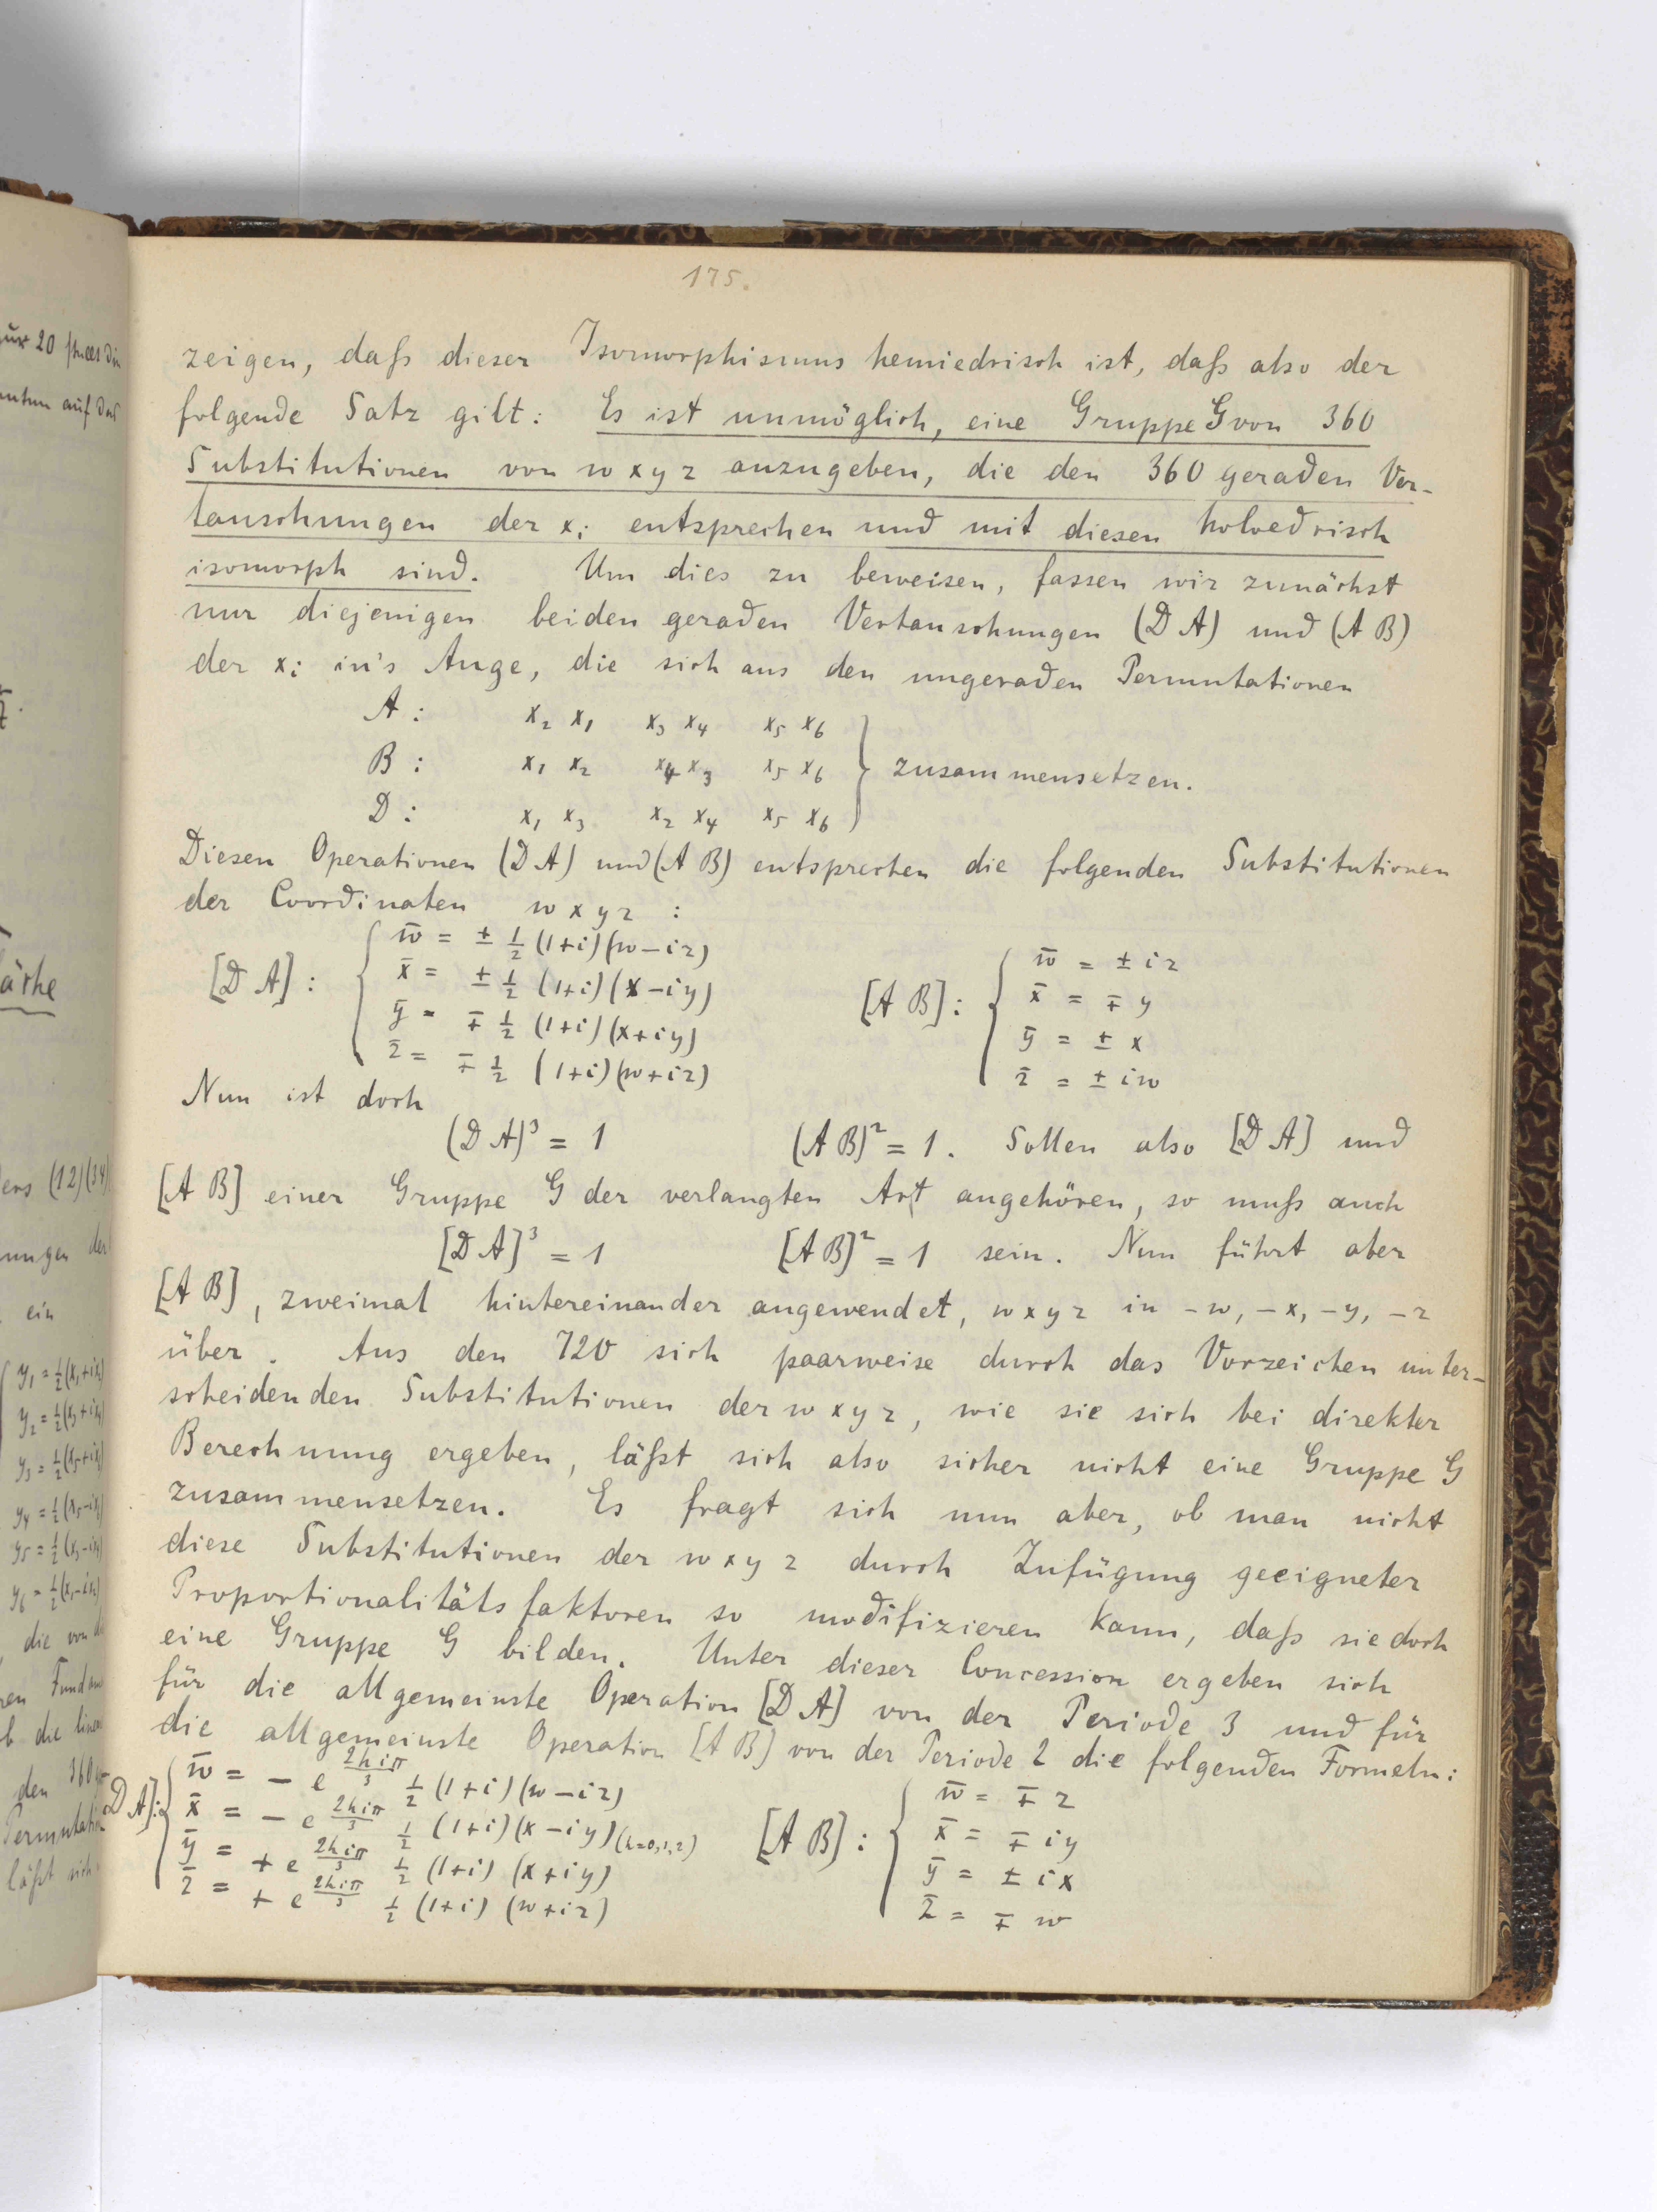 175.
zeigen, daß dieser Isomorphismus hemiedrisch ist, daß also der
folgende Satz gilt: Es ist unmöglich, eine Gruppe G von 360
Substitutionen von w x y z anzugeben, die den 360 geraden Ver-
tauschungen der xᵢ entsprechen und mit diesen holoedrisch
isomorph sind. Um dies zu beweisen, fassen wir zunächst
nur diejenigen beiden geraden Vertauschungen (D A) und (A B)
der xᵢ in's Auge, die sich aus den ungeraden Permutationen
A : x₂ x₁ x₃ x₄ x₅ x₆
B : x₁ x₂ x₄ x₃ x₅ x₆ } zusammensetzen.
D : x₁ x₃ x₂ x₄ x₅ x₆
Diesen Operationen (D A) und (A B) entsprechen die folgenden Substitutionen
der Coordinaten w x y z :
w̄ = ± ½ (1+i)(w−iz)
x̄ = ± ½ (1+i)(x−iy)
ȳ = ∓ ½ (1+i)(x+iy)
z̄ = ∓ ½ (1+i)(w+iz)
[D A] : {
[A B] : {
w̄ = ± iz
x̄ = ∓ y
ȳ = ± x
z̄ = ± iw
Nun ist doch
(D A)³ = 1 (A B)² = 1. Sollen also [D A] und
[A B] einer Gruppe G der verlangten Art angehören, so muß auch
[D A]³ = 1 [A B]² = 1 sein. Nun führt aber
[A B], zweimal hintereinander angewendet, w x y z in −w, −x, −y, −z
über. Aus den 720 sich paarweise durch das Vorzeichen unter-
scheidenden Substitutionen der w x y z, wie sie sich bei direkter
Berechnung ergeben, läßt sich also sicher nicht eine Gruppe G
zusammensetzen. Es fragt sich nun aber, ob man nicht
diese Substitutionen der w x y z durch Zufügung geeigneter
Proportionalitätsfaktoren so modifizieren kann, daß sie doch
eine Gruppe G bilden. Unter dieser Concession ergeben sich
für die allgemeinste Operation [D A] von der Periode 3 und für
die allgemeinste Operation [A B] von der Periode 2 die folgenden Formeln:
D A] : {
w̄ = − e^{2hiπ/3} ½ (1+i)(w−iz)
x̄ = − e^{2hiπ/3} ½ (1+i)(x−iy) (h=0,1,2)
ȳ = + e^{2hiπ/3} ½ (1+i) (x+iy)
z̄ = + e^{2hiπ/3} ½ (1+i) (w+iz)
[A B] : {
w̄ = ∓ z
x̄ = ∓ iy
ȳ = ± ix
z̄ = ∓ w